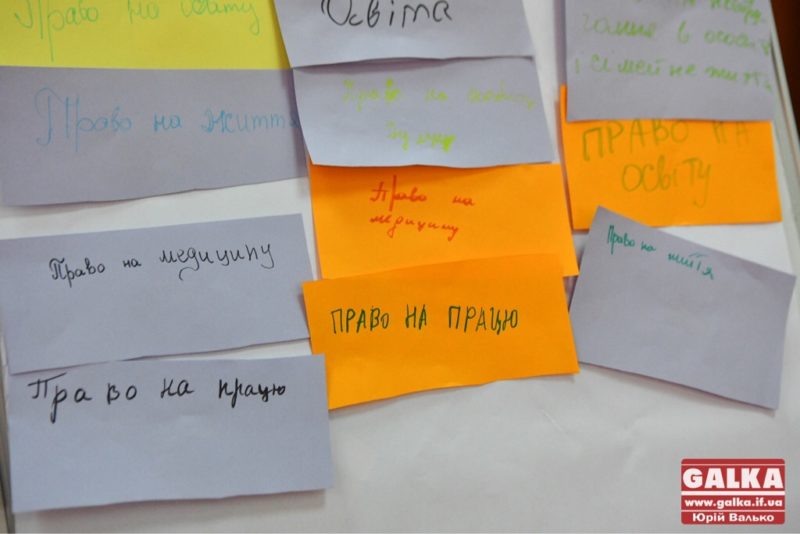 Право на освіту
Право на життя
Право на медицину
Право на працю
Освіта
Право на
думку
Право на
медицину
ПРАВО НА ПРАЦЮ
в особи
і сімейне життя
ПРАВО НА
ОСВІТУ
Право на життя
GALKA
www.galka.if.ua
Юрій Валько